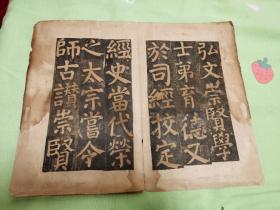 弘文崇賢學
士弟育德又
於司經挍定
經史當代榮
之太宗嘗令
師古譛崇賢